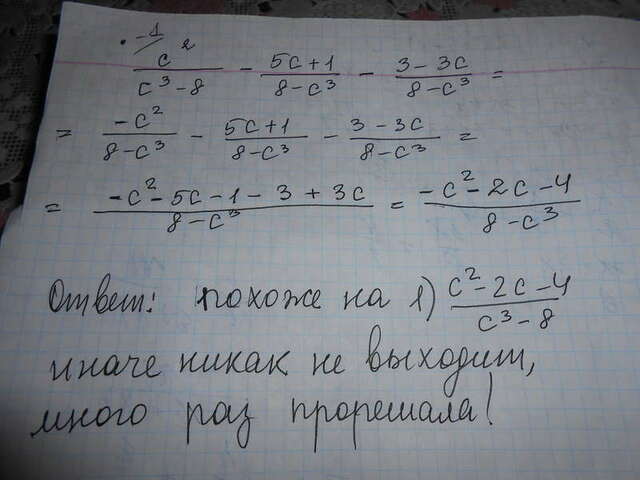 . -1
c²/(c³-8) - (5c+1)/(8-c³) - (3-3c)/(8-c³) =
= -c²/(8-c³) - (5c+1)/(8-c³) - (3-3c)/(8-c³) =
= (-c²-5c-1-3+3c)/(8-c³) = (-c²-2c-4)/(8-c³)
Ответ: похоже на 1) (c²-2c-4)/(c³-8)
иначе никак не выходит,
много раз прорешала!